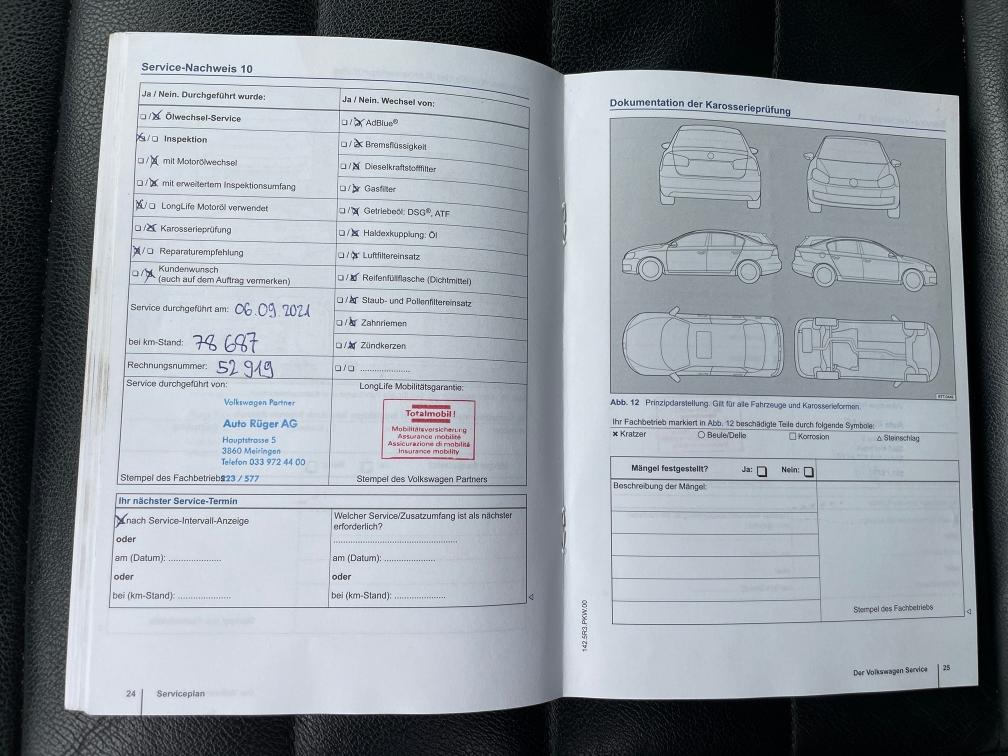 Service-Nachweis 10
Ja / Nein. Durchgeführt wurde:
☐/☒ Ölwechsel-Service
☒/☐ Inspektion
☐/☒ mit Motorölwechsel
☐/☒ mit erweitertem Inspektionsumfang
☒/☐ LongLife Motoröl verwendet
☐/☒ Karosserieprüfung
☒/☐ Reparaturempfehlung
☐/☒ Kundenwunsch
(auch auf dem Auftrag vermerken)
Service durchgeführt am: 06.09.2021
bei km-Stand: 78 687
Rechnungsnummer: 52 919
Ja / Nein. Wechsel von:
☐/☒ AdBlue®
☐/☒ Bremsflüssigkeit
☐/☒ Dieselkraftstofffilter
☐/☒ Gasfilter
☐/☒ Getriebeöl: DSG®, ATF
☐/☒ Haldexkupplung: Öl
☐/☒ Luftfiltereinsatz
☐/☒ Reifenfüllflasche (Dichtmittel)
☐/☒ Staub- und Pollenfiltereinsatz
☐/☒ Zahnriemen
☐/☒ Zündkerzen
☐/☐ ....................
Service durchgeführt von:
Volkswagen Partner
Auto Rüger AG
Hauptstrasse 5
3860 Meiringen
Telefon 033 972 44 00
223 / 577
Stempel des Fachbetriebs
LongLife Mobilitätsgarantie:
Totalmobil!
Mobilitätsversicherung
Assurance mobilité
Assicurazione di mobilità
Insurance mobility
Stempel des Volkswagen Partners
Ihr nächster Service-Termin
☒ nach Service-Intervall-Anzeige
oder
am (Datum): .....................
oder
bei (km-Stand): .....................
Welcher Service/Zusatzumfang ist als nächster
erforderlich?
..................................................
am (Datum): .....................
oder
bei (km-Stand): .....................
24 Serviceplan
Dokumentation der Karosserieprüfung
Abb. 12 Prinzipdarstellung. Gilt für alle Fahrzeuge und Karosserieformen.
Ihr Fachbetrieb markiert in Abb. 12 beschädigte Teile durch folgende Symbole:
× Kratzer ○ Beule/Delle □ Korrosion △ Steinschlag
Mängel festgestellt? Ja: ☐ Nein: ☐
Beschreibung der Mängel:
Stempel des Fachbetriebs
142.5R3.PKW.00
Der Volkswagen Service 25